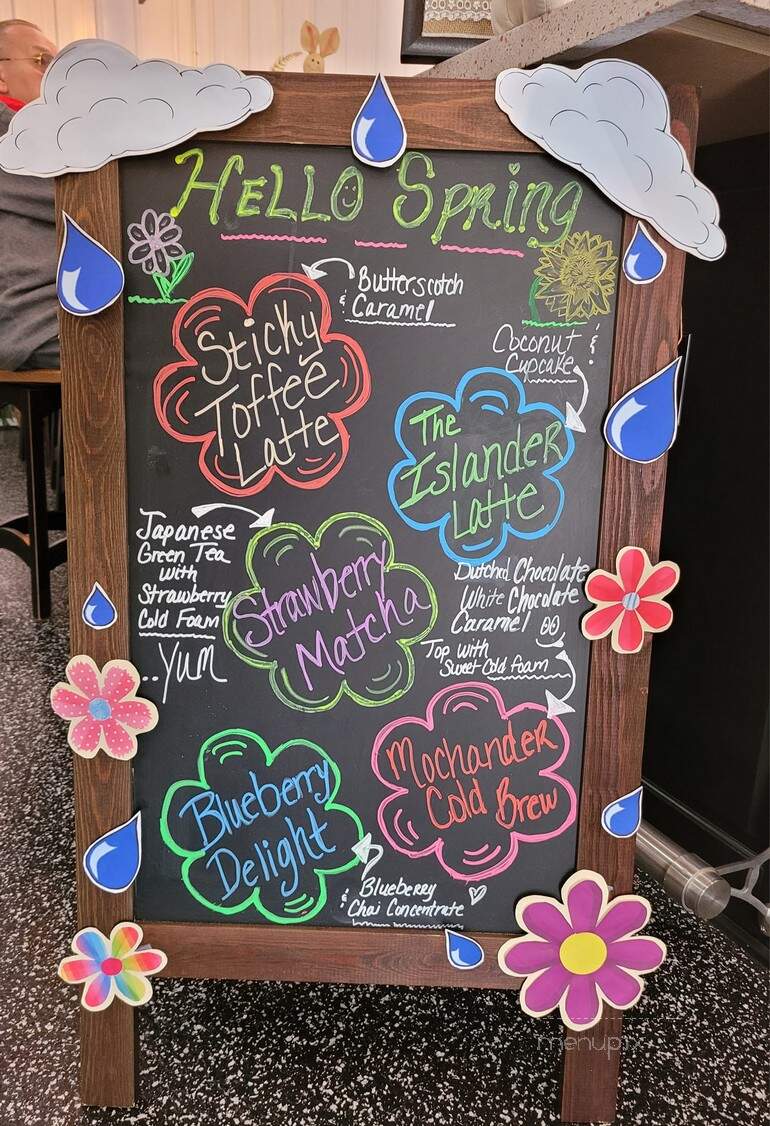 HELLO Spring
Butterscotch
& Caramel
Sticky
Toffee
Latte
Coconut &
Cupcake
The
Islander
Latte
Japanese
Green Tea
with
Strawberry
Cold Foam
..Yum
Strawberry
Matcha
Dutched Chocolate
White Chocolate
Caramel
Top with
Sweet Cold foam
Mochander
Cold Brew
Blueberry
Delight
Blueberry
& Chai Concentrate
menupix